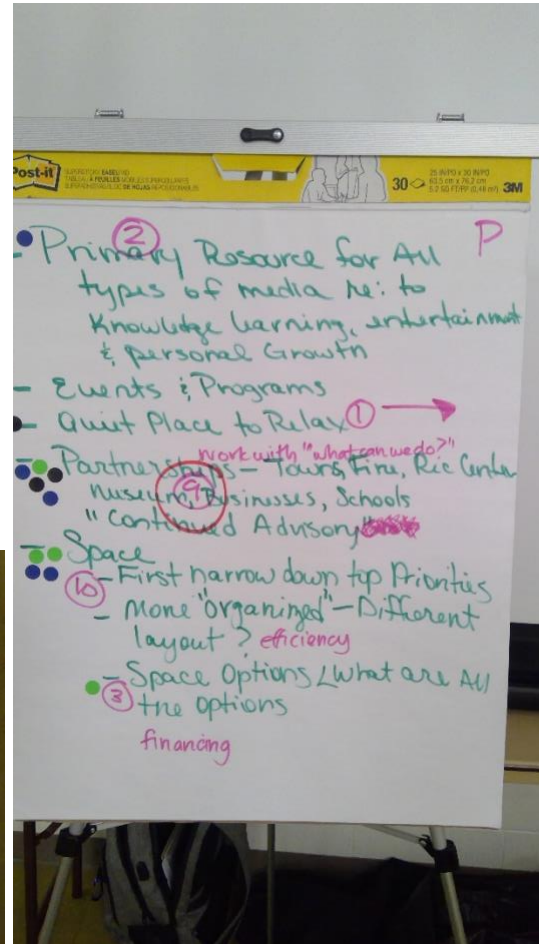 Post-it
30
25 IN/PO x 30 IN/PO
63,5 cm x 76,2 cm
5.2 SQ FT/PP (0,48 m²) 3M
P
2
- Primary Resource for All
types of media re: to
Knowledge learning, entertainment
& personal Growth
- Events & Programs
- Quiet Place to Relax 1 →
work with "what can we do?"
- Partnerships - Towns, Fire, Rec Center
museum, Businesses, Schools
9
"Continued Advisory"
- Space
10 - First narrow down top Priorities
- More "organized" - Different
layout? efficiency
- Space Options / What are All
3 the options
financing